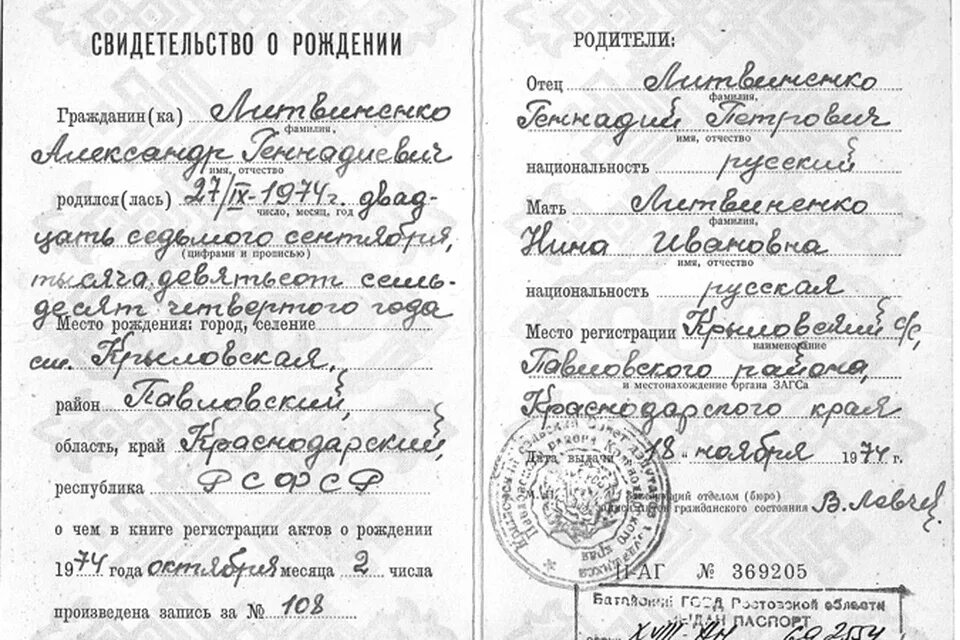 СВИДЕТЕЛЬСТВО О РОЖДЕНИИ
Гражданин(ка) Литвиненко
фамилия,
Александр Геннадиевич
имя, отчество
родился(лась) 27/IX-1974г. двад-
число, месяц, год
цать седьмого сентября,
(цифрами и прописью)
тысяча девятьсот семь-
десят четвертого года
Место рождения: город, селение
ст. Крыловская,
район Павловский,
область, край Краснодарский,
республика РСФСР
о чем в книге регистрации актов о рождении
1974 года октября месяца 2 числа
произведена запись за № 108
РОДИТЕЛИ:
Отец Литвиненко
фамилия,
Геннадий Петрович
имя, отчество
национальность русский
Мать Литвиненко
фамилия,
Нина Ивановна
имя, отчество
национальность русская
Место регистрации Крыловский с/с,
наименование
Павловского района,
и местонахождение органа ЗАГСа
Краснодарского края
Дата выдачи 18 " ноября 1974 г.
отделом (бюро)
гражданского состояния
II-АГ № 369205
Батайский ГОВД Ростовской области
ВЫДАН ПАСПОРТ
XVIII-АН